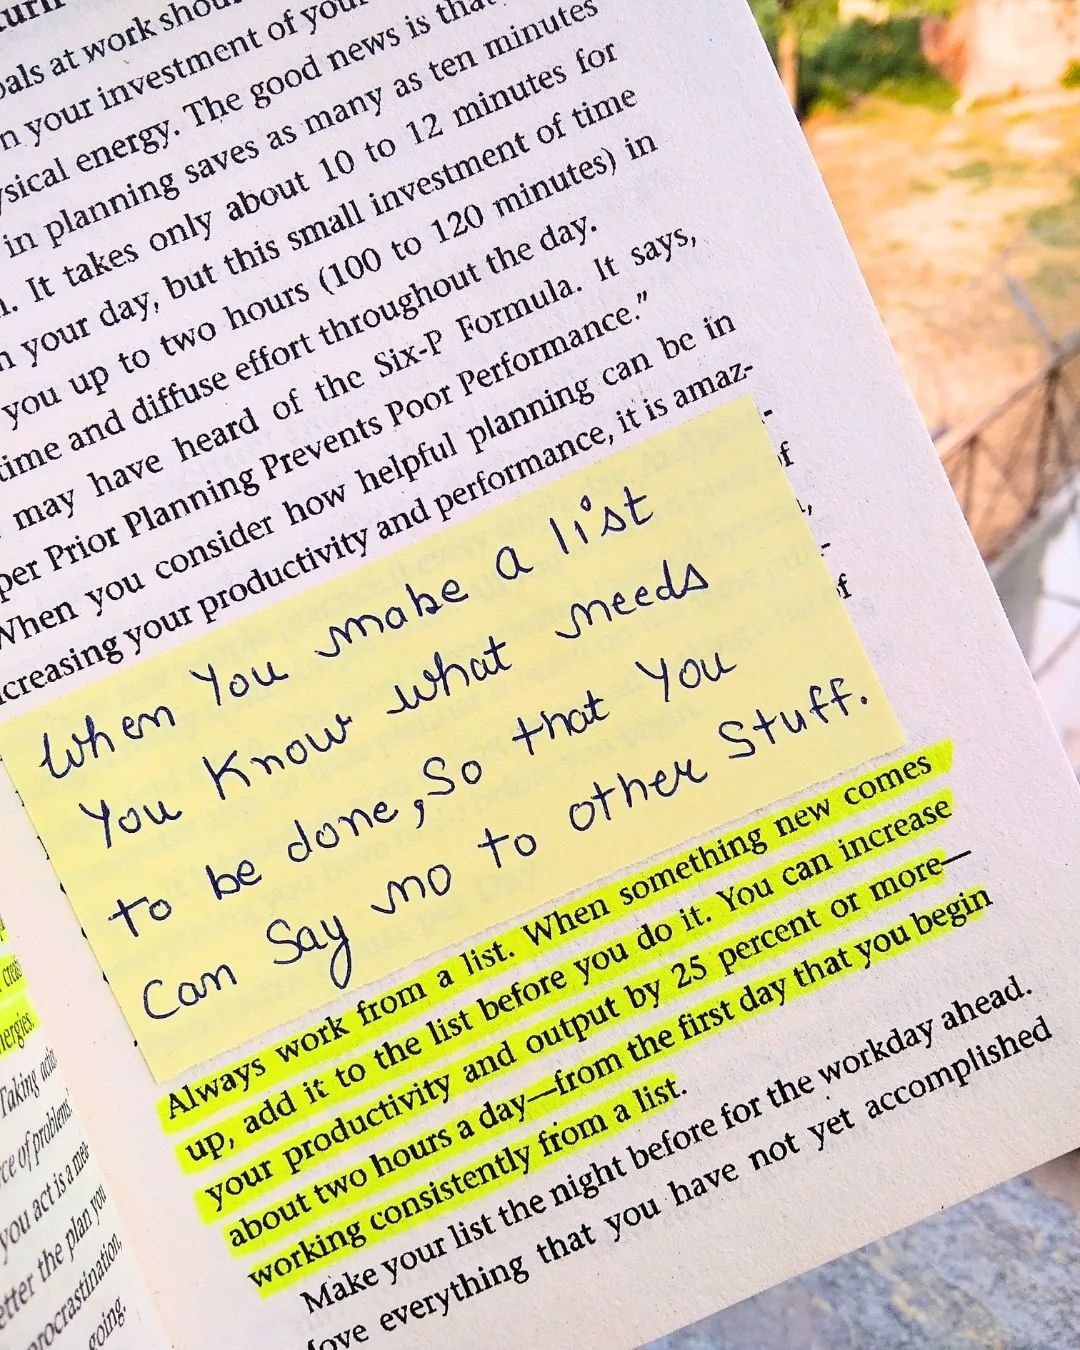 als at work shou
n your investment of you
ysical energy. The good news is tha
in planning saves as many as ten minutes
. It takes only about 10 to 12 minutes for
n your day, but this small investment of time
you up to two hours (100 to 120 minutes) in
time and diffuse effort throughout the day.
may have heard of the Six-P Formula. It says,
per Prior Planning Prevents Poor Performance."
When you consider how helpful planning can be in
creasing your productivity and performance, it is amaz-
When You make a list
You Know what needs
to be done, So that You
Can Say no to other Stuff.
Always work from a list. When something new comes
up, add it to the list before you do it. You can increase
your productivity and output by 25 percent or more—
about two hours a day—from the first day that you begin
working consistently from a list.
Make your list the night before for the workday ahead.
ove everything that you have not yet accomplished
ergies.
Taking actio
ce of problems
you act is a mea
etter the plan you
procrastination,
going.